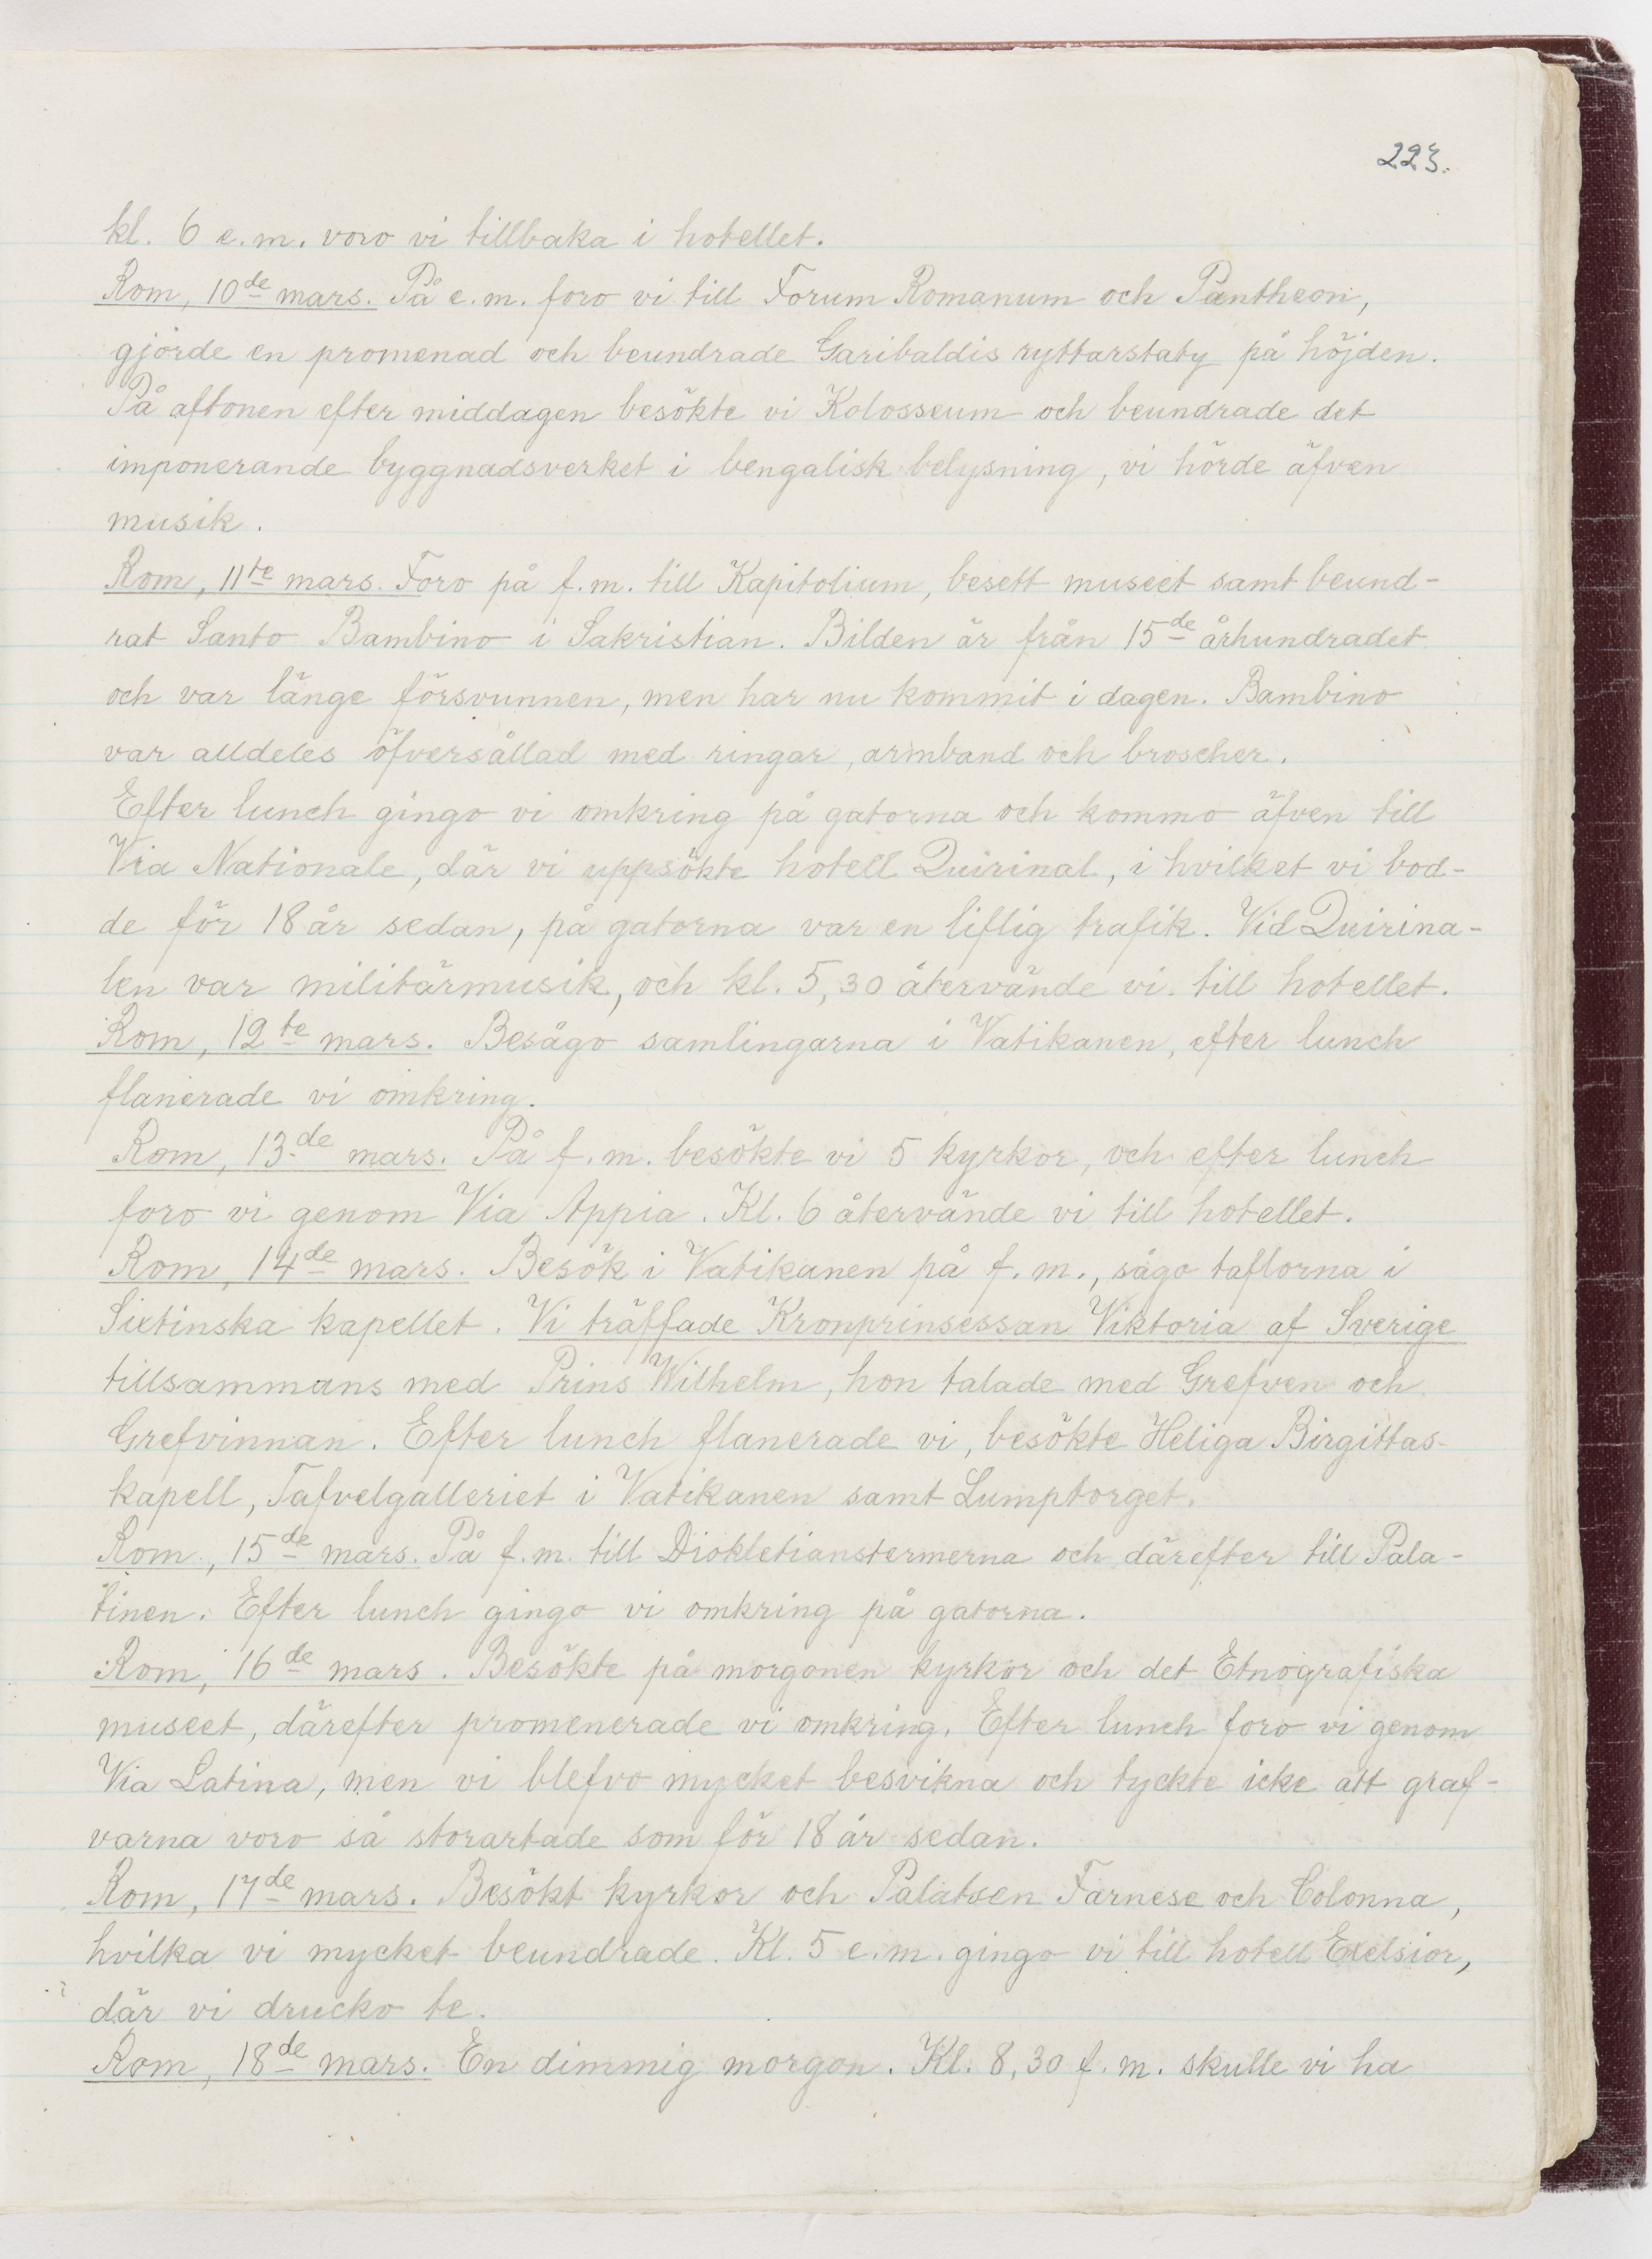 223.
kl. 6 e.m. voro vi tillbaka i hotellet.
Rom, 10de mars. På e.m. foro vi till Forum Romanum och Pantheon,
gjorde en promenad och beundrade Garibaldis ryttarstaty på höjden.
På aftonen efter middagen besökte vi Kolosseum och beundrade det
imponerande byggnadsverket i bengalisk belysning, vi hörde äfven
musik.
Rom, 11te mars. Foro på f.m. till Kapitolium, besett museet samt beund-
rat Santo Bambino i Sakristian. Bilden är från 15de århundradet
och var länge försvunnen, men har nu kommit i dagen. Bambino
var alldeles öfversållad med ringar, armband och broscher.
Efter lunch gingo vi omkring på gatorna och kommo äfven till
Via Nationale, där vi uppsökte hotell Quirinal, i hvilket vi bod-
de för 18 år sedan, på gatorna var en liflig trafik. Vid Quirina-
len var militärmusik, och kl. 5,30 återvände vi till hotellet.
Rom, 12te mars. Besågo samlingarna i Vatikanen, efter lunch
flanerade vi omkring.
Rom, 13de mars. På f.m. besökte vi 5 kyrkor, och efter lunch
foro vi genom Via Appia. Kl. 6 återvände vi till hotellet.
Rom, 14de mars. Besök i Vatikanen på f.m., sågo taflorna i
Sixtinska kapellet. Vi träffade Kronprinsessan Viktoria af Sverige
tillsammans med Prins Wilhelm, hon talade med Grefven och
Grefvinnan. Efter lunch flanerade vi, besökte Heliga Birgittas-
kapell, Tafvelgalleriet i Vatikanen samt Lumptorget.
Rom, 15de mars. På f.m. till Diokletianstermerna och därefter till Pala-
tinen. Efter lunch gingo vi omkring på gatorna.
Rom, 16de mars. Besökte på morgonen kyrkor och det Etnografiska
museet, därefter promenerade vi omkring. Efter lunch foro vi genom
Via Latina, men vi blefvo mycket besvikna och tyckte icke att graf-
varna voro så storartade som för 18 år sedan.
Rom, 17de mars. Besökt kyrkor och Palatsen Farnese och Colonna,
hvilka vi mycket beundrade. Kl. 5 e.m. gingo vi till hotell Exelsior,
där vi drucko te.
Rom, 18de mars. En dimmig morgon. Kl. 8,30 f.m. skulle vi ha